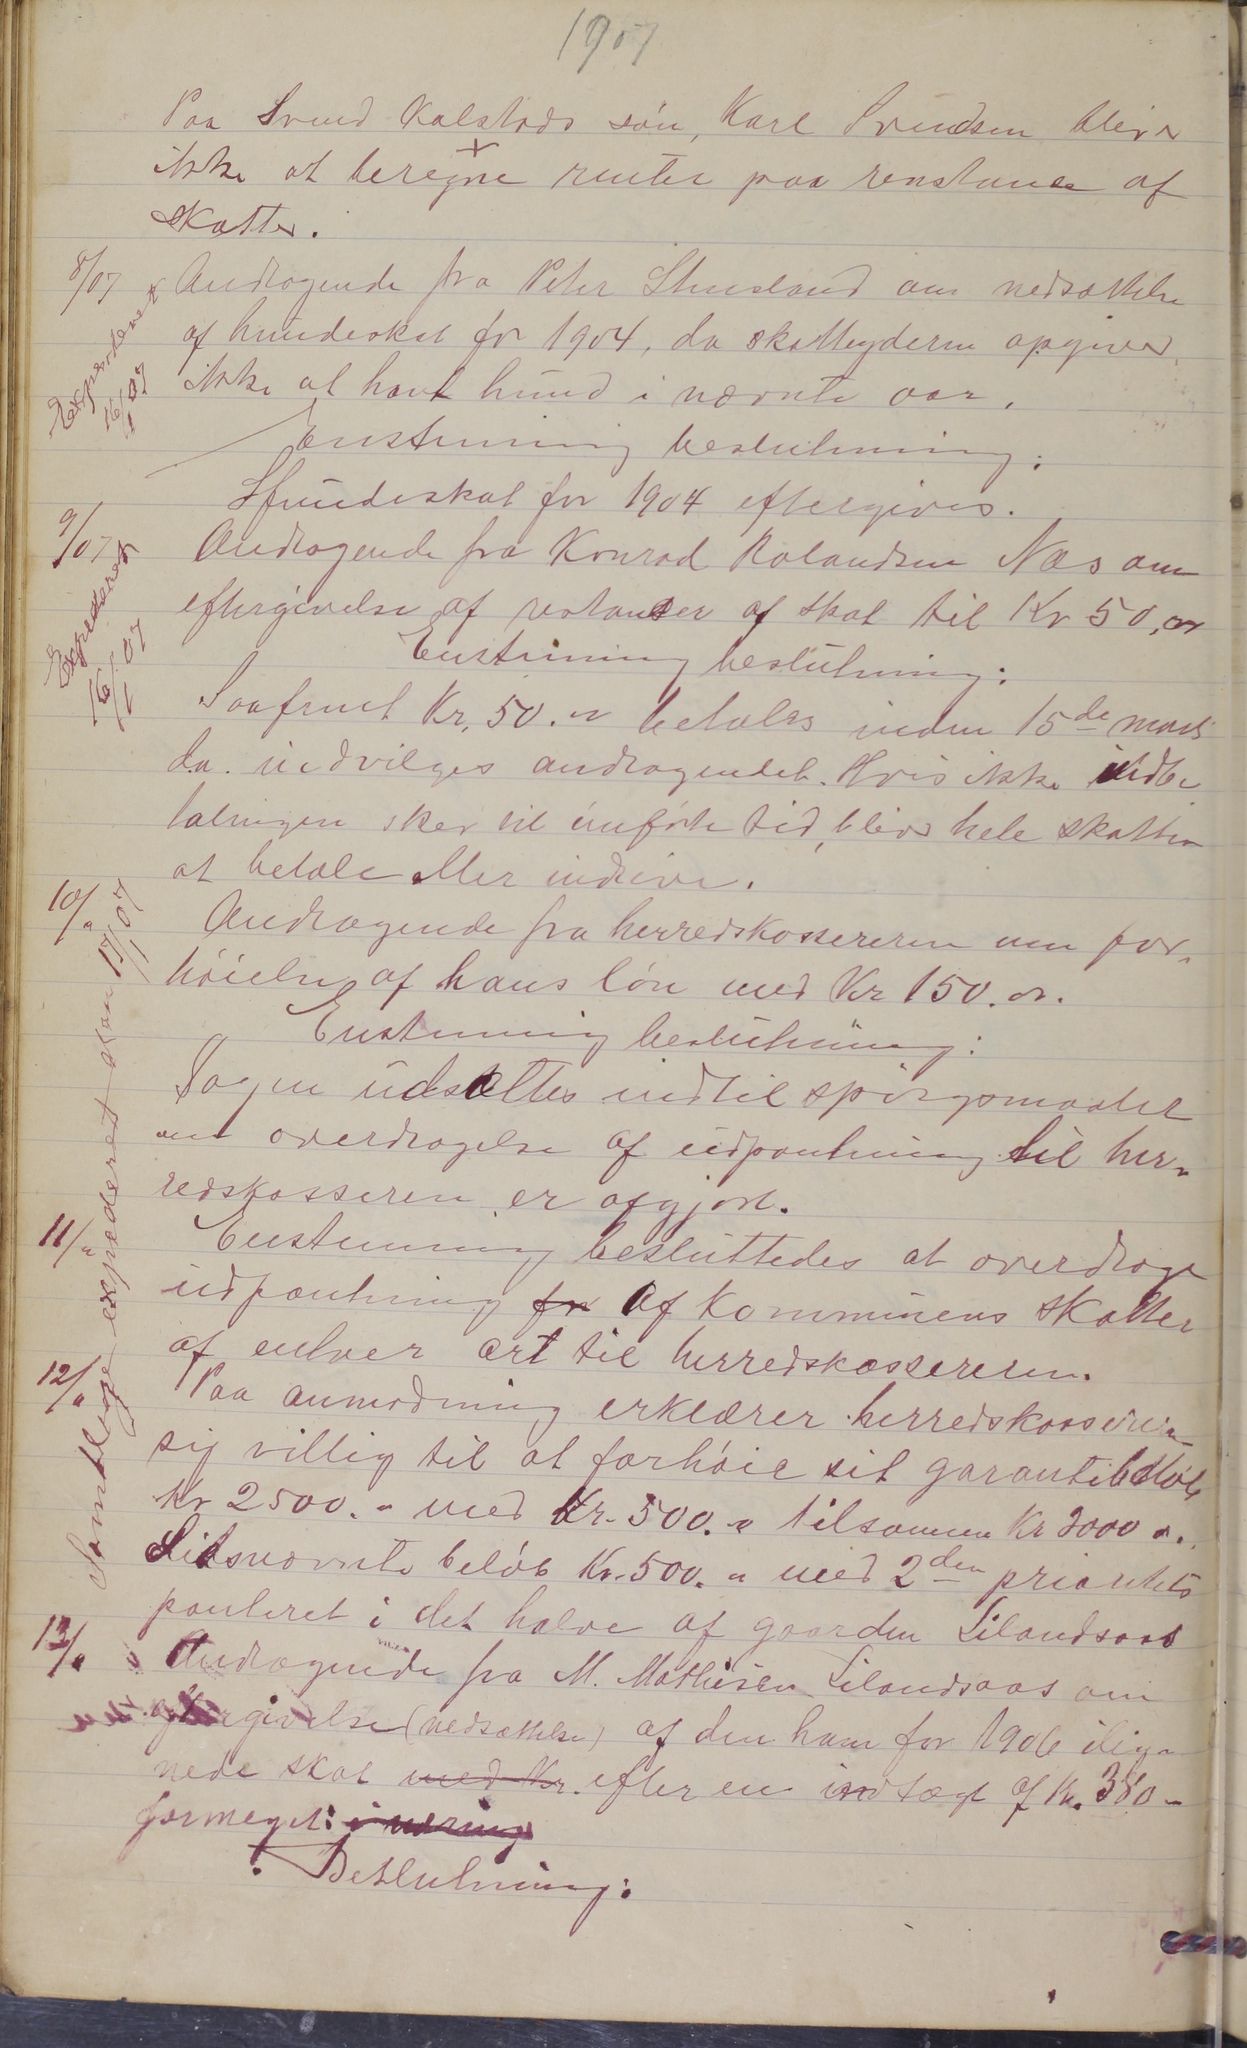 1907
Paa Svend Kalstads søn, Karl Svendsen bliver
ikke at beregne renter paa restancer af
skatter.
8/07 Andragende fra Peter Stusland om nedsættelse
af hundeskat for 1904, da skatteyderen opgiver
ikke at havt hund i nævnte aar.
Expederet 16/1 07
Enstemmig beslutning:
Hundeskat for 1904 eftergives.
9/07 Andragende fra Konrad Rolandsen Næs om
eftergivelse af restancer af skat til Kr 50,00
Expederet 16/1 07
Enstemmig beslutning:
Saafremt Kr. 50.00 betales inden 15de marts
d.a. indvilges andragendet. Hvis ikke indbe
talingen sker til anførte tid, blir hele skatten
at betale eller inddrive.
10/" Andragende fra herredskassereren om for-
høielse af hans løn med Kr 150.00.
Enstemmig beslutning:
Sagen udsættes indtil spørgsmaalet
om overdragelse af udpantning til her-
redskasseren er afgjort.
11/" Enstemmig besluttedes at overdrage
udpantning for af Kommunens skatter
af enhver art til herredskassereren.
12/" Paa anmodning erklærer herredskassereren
sig villig til at forhøie sit garantibeløb
Kr 2500.- med Kr. 500.- tilsammen Kr 3000.-
Sidsnævnte beløb Kr. 500.- med 2den prioritets
panteret i det halve af gaarden Lilandsaas
Samtlige expederet den 17/1 07
13/" Andragende fra M. Mathisen Lilandsaas om
eftergivelse (nedsættelse) af den ham for 1906 ilig-
nede skat med Kr. efter en indtægt af Kr. 380-
formeget: i næring
Beslutning: